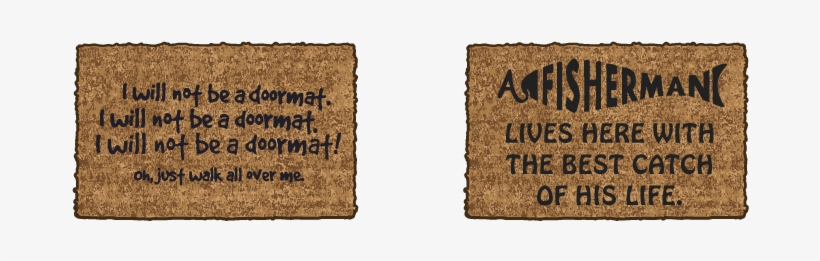 I will not be a doormat.
I will not be a doormat.
I will not be a doormat!
oh, just walk all over me.
A FISHERMAN
LIVES HERE WITH
THE BEST CATCH
OF HIS LIFE.